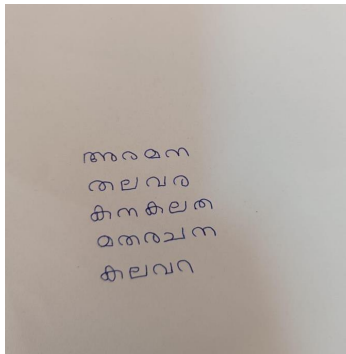 അരമന
തലവര
കനകലത
മതരചന
കലവറ